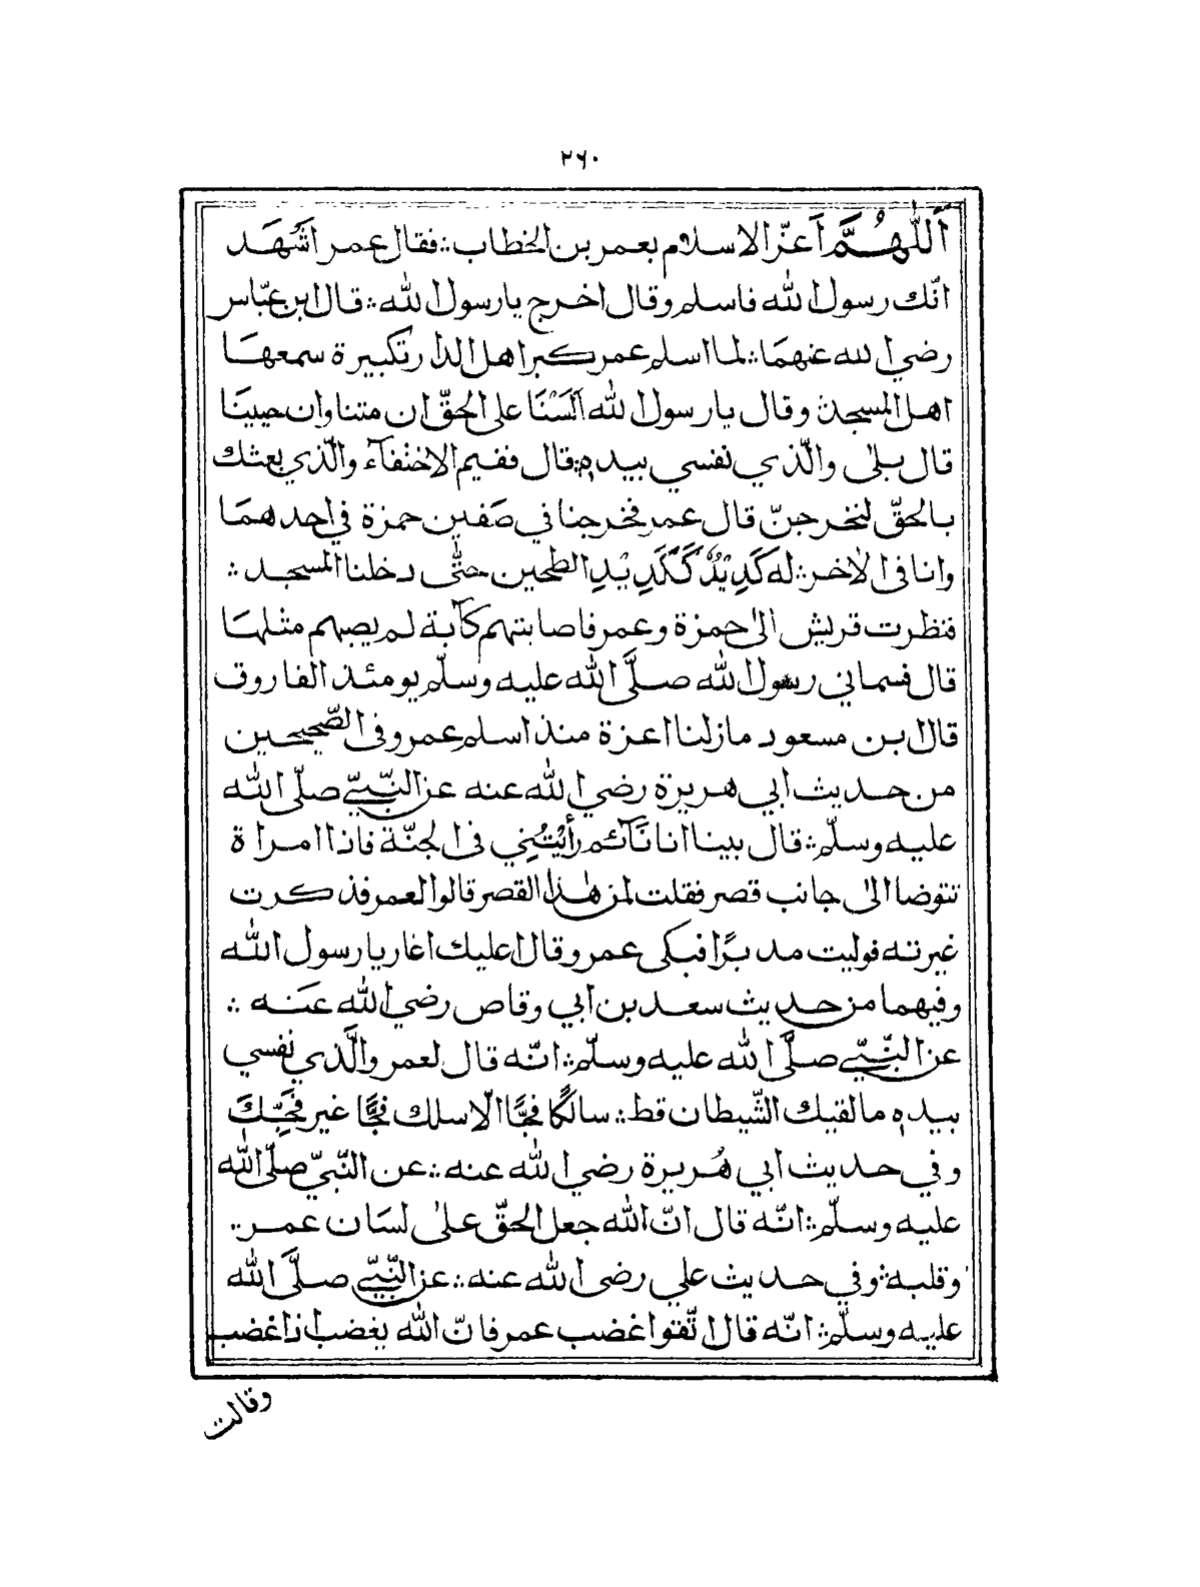 ٢٦٠
اَللّٰهُمَّ اَعزّ الاسلام بعمر بن الخطاب :: فقال عمر اشْهَد
انّك رسول الله فاسلم وقال اخرج يا رسول الله :: قال ابن عبّاس
رضي الله عنهمَا :: لما اسلم عمر كبر اهل الدار تكبيرة سمعهَا
اهل المسجد وقال يا رسول الله اَلَسْنَا على الحقّ ان متنا وان حيينَا
قال بلىٰ والّذي نفسي بيده :: قال ففيم الاختفآء والّذي بعثك
بالحقّ لنخرجنّ قال عمر فخرجنا في صَفين حمزة في احدهمَا
وانا في الاٰخر :: له كَدِيْدٌ كَكَدِيْدِ الطحين حتّٰى دخلنا المسجد ::
فنظرت قريش الىٰ حمزة وعمر فاصابتهم كآبة لم يصبهم مثلهَا
قال فسماني رسول الله صلَّى الله عليه وسلّم يومئذ الفاروق
قال ابن مسعود ما زلنا اعزة منذ اسلم عمر وفي الصّحيحين
من حديث ابي هريرة رضي الله عنه عن النّبيّ صلّى الله
عليه وسلّم :: قال بينا انا نَآئم رأَيْتُنِي في الجنّة فاذا امراة
تتوضا الىٰ جانب قصر فقلت لمن هٰذا القصر قالوا لعمر فذكرت
غيرته فوليت مدبرًا فبكى عمر وقال اعليك اغار يا رسول الله
وفيهما من حديث سعد بن ابي وقاص رضي الله عَنه ::
عن النّبيّ صلَّى الله عليه وسلّم :: انّه قال لعمر والَّذي نفسي
بيده ما لقيك الشّيطان قط :: سالكًا فجًّا الّا سلك فجًّا غير فجِّكَ
وفي حديث ابي هُريرة رضي الله عنه :: عن النّبيّ صلّى الله
عليه وسلّم :: انّه قال انّ الله جعل الحقّ على لسَان عمر ::
وقلبه :: وفي حديث علي رضي الله عنه :: عن النّبيّ صلَّى الله
عليه وسلّم :: انّه قال اتّقوا غضب عمر فانّ الله يغضب اذا غضب
وقالت